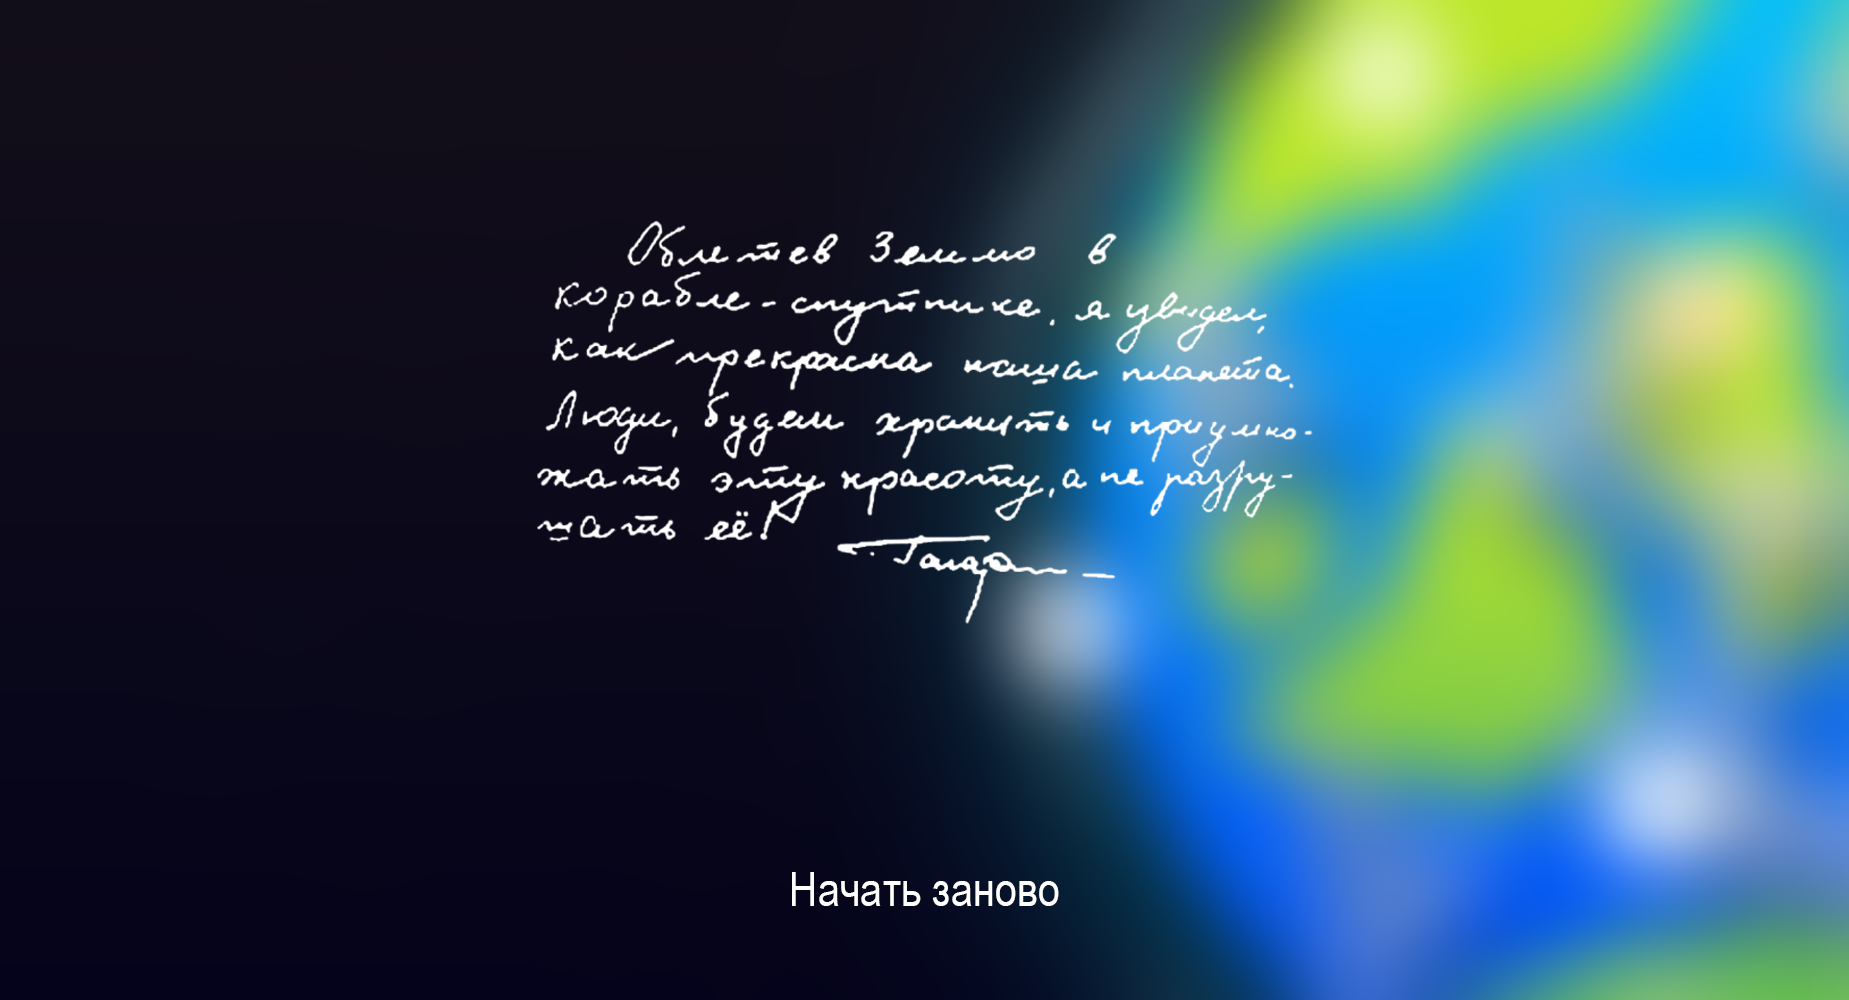 Облетев Землю в
корабле-спутнике, я увидел,
как прекрасна наша планета.
Люди, будем хранить и приумно-
жать эту красоту, а не разру-
шать её!
Гагарин
Начать заново